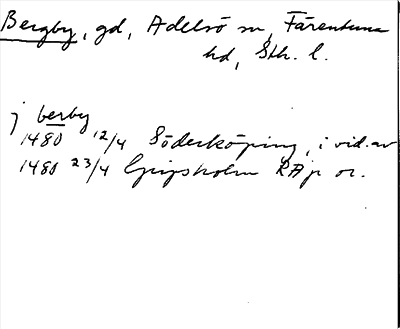 Bergby, gd, Adelsö sn, Färentuna
hd, Sth. l.
j berby
1480 12/4 Söderköping, i vid. av
1480 23/4 Gripsholm RAp or.